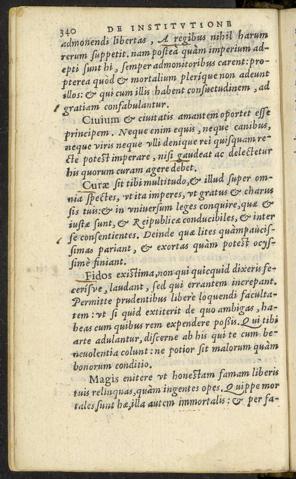 340 DE INSTITVTIONE
admonendi libertas, A regibus nihil harum
rerum suppetit. nam posteà quàm imperium ad-
epti sunt hi, semper admonitoribus carent: pro-
pterea quod & mortalium pleriq́ue non adeunt
illos: & qui cum illis habent consuetudinem, ad
gratiam confabulantur.
Ciuium & ciuitatis amantem oportet esse
principem. Neque enim equis, neque canibus,
neque viris neque vlli denique rei quisquam re-
ctè potest imperare, nisi gaudeat ac delectetur
his quorum curam agere debet.
Curæ sit tibi multitudo, & illud super om-
nia spectes, vt ita imperes, vt gratus & charus
sis tuis: & in vniuersum leges conquire, quæ &
iustæ sunt, & Reipublicæ conducibiles, & inter
se consentientes. Deinde quæ lites quàm paucis-
simas pariant, & exortas quàm potest ocys-
simè finiant.
Fidos existima, non qui quicquid dixeris fe-
cerisve, laudant, sed qui errantem increpant.
Permitte prudentibus liberè loquendi faculta-
tem: vt si quid extiterit de quo ambigas, ha-
beas cum quibus rem expendere possis. Qui tibi
arte adulantur, discerne ab his qui te cum be-
neuolentia colunt: ne potior sit malorum quàm
bonorum conditio.
Magis enitere vt honestam famam liberis
tuis relinquas, quàm ingentes opes. Quippe mor
tales sunt hæ, illa autem immortalis: & per fa-